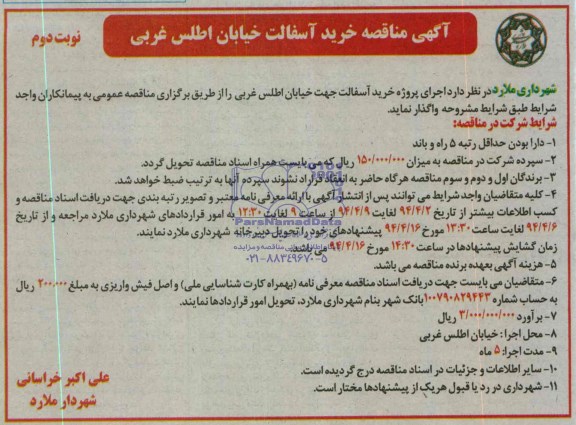 آگهی مناقصه خرید آسفالت خیابان اطلس غربی
نوبت دوم
شهرداری ملارد در نظر دارد اجرای پروژه خرید آسفالت جهت خیابان اطلس غربی را از طریق برگزاری مناقصه عمومی به پیمانکاران واجد
شرایط طبق شرایط مشروحه واگذار نماید.
شرایط شرکت در مناقصه:
۱- دارا بودن حداقل رتبه ۵ راه و باند
۲- سپرده شرکت در مناقصه به میزان ۱۵۰/۰۰۰/۰۰۰ ریال که می بایست همراه اسناد مناقصه تحویل گردد.
۳- برندگان اول و دوم و سوم مناقصه هرگاه حاضر به انعقاد قرارداد نشوند سپرده آنها به ترتیب ضبط خواهد شد.
۴- کلیه متقاضیان واجد شرایط می توانند پس از انتشار آگهی با ارائه معرفی نامه معتبر و تصویر رتبه بندی جهت دریافت اسناد مناقصه و
کسب اطلاعات بیشتر از تاریخ ۹۴/۴/۲ لغایت ۹۴/۴/۹ از ساعت ۹ لغایت ۱۲:۳۰ به امور قراردادهای شهرداری ملارد مراجعه و از تاریخ
۹۴/۴/۶ لغایت ساعت ۱۳:۳۰ مورخ ۹۴/۴/۱۶ پیشنهادهای خود را تحویل دبیرخانه شهرداری ملارد نمایند.
زمان گشایش پیشنهادها در ساعت ۱۴:۳۰ مورخ ۹۴/۴/۱۶ می باشد.
۵- هزینه آگهی بعهده برنده مناقصه می باشد.
۶- متقاضیان می بایست جهت دریافت اسناد مناقصه معرفی نامه (بهمراه کارت شناسایی ملی) و اصل فیش واریزی به مبلغ ۲۰۰.۰۰۰ ریال
به حساب شماره ۱۰۰۷۹۰۸۲۹۴۴۳ بانک شهر بنام شهرداری ملارد، تحویل امور قراردادها نمایند.
۷- برآورد ۳/۰۰۰/۰۰۰/۰۰۰ ریال
۸- محل اجرا: خیابان اطلس غربی
۹- مدت اجرا: ۵ ماه
۱۰- سایر اطلاعات و جزئیات در اسناد مناقصه درج گردیده است.
۱۱- شهرداری در رد یا قبول هریک از پیشنهادها مختار است.
علی اکبر خراسانی
شهردار ملارد
ParsNamadData
۰۲۱-۸۸۳۴۹۶۷۰-۵